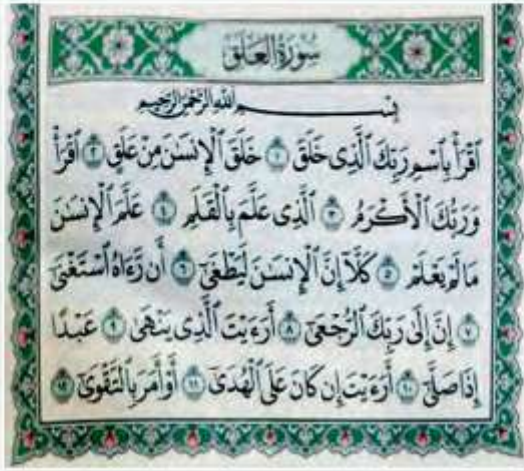 سُورَةُ العَلَقِ
بِسْمِ اللَّهِ الرَّحْمَٰنِ الرَّحِيمِ
ٱقْرَأْ بِٱسْمِ رَبِّكَ ٱلَّذِى خَلَقَ ١ خَلَقَ ٱلْإِنسَـٰنَ مِنْ عَلَقٍ ٢ ٱقْرَأْ
وَرَبُّكَ ٱلْأَكْرَمُ ٣ ٱلَّذِى عَلَّمَ بِٱلْقَلَمِ ٤ عَلَّمَ ٱلْإِنسَـٰنَ
مَا لَمْ يَعْلَمْ ٥ كَلَّآ إِنَّ ٱلْإِنسَـٰنَ لَيَطْغَىٰٓ ٦ أَن رَّءَاهُ ٱسْتَغْنَىٰٓ
٧ إِنَّ إِلَىٰ رَبِّكَ ٱلرُّجْعَىٰٓ ٨ أَرَءَيْتَ ٱلَّذِى يَنْهَىٰ ٩ عَبْدًا
إِذَا صَلَّىٰٓ ١٠ أَرَءَيْتَ إِن كَانَ عَلَى ٱلْهُدَىٰٓ ١١ أَوْ أَمَرَ بِٱلتَّقْوَىٰٓ ١٢